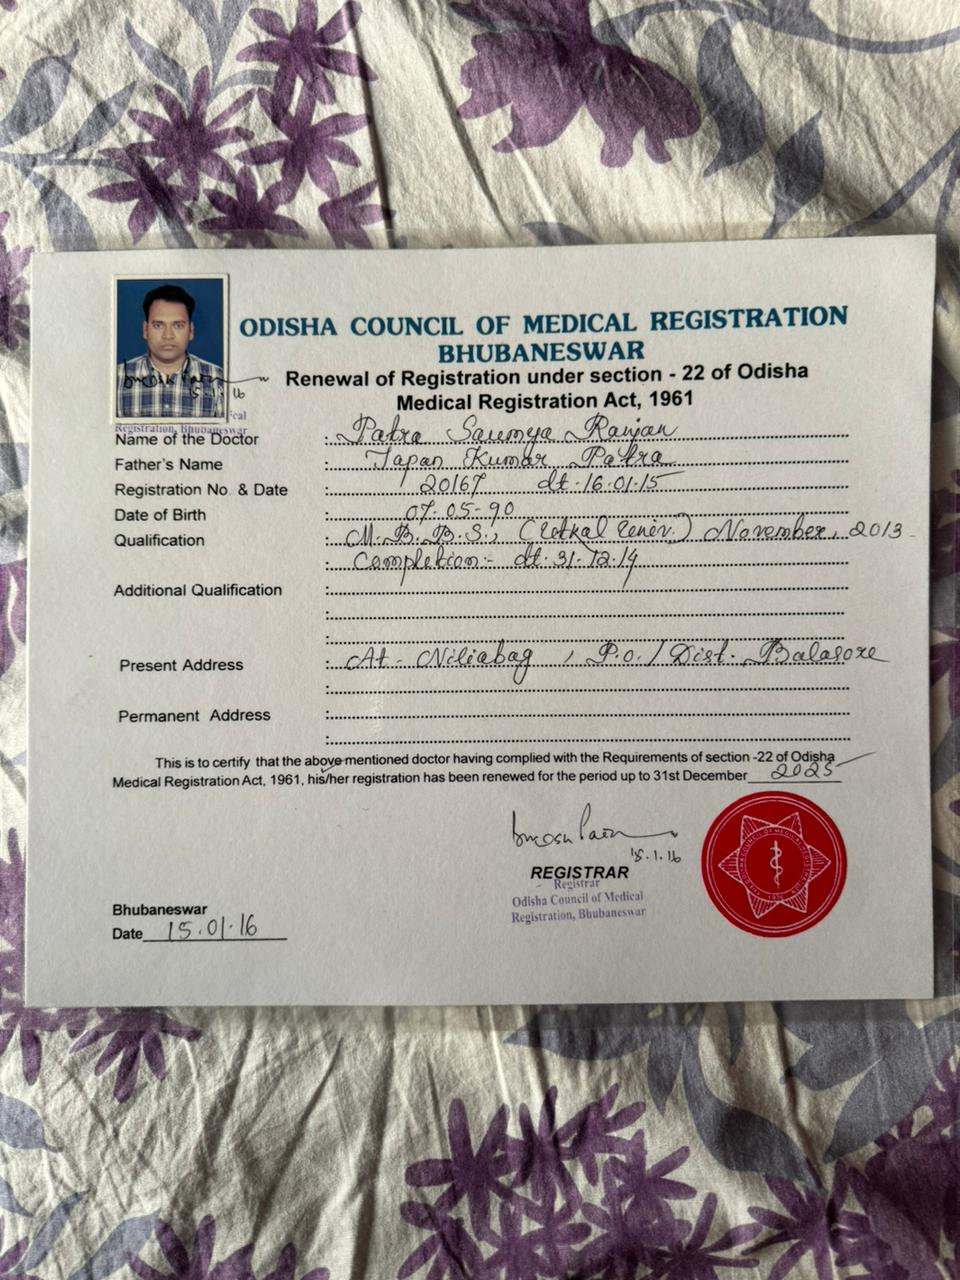 ODISHA COUNCIL OF MEDICAL REGISTRATION
BHUBANESWAR
Renewal of Registration under section - 22 of Odisha
Medical Registration Act, 1961
15.1.16
Registration, Bhubaneswar
Name of the Doctor : Patra Saumya Ranjan
Father's Name : Tapan Kumar Patra
Registration No. & Date : 20167 dt-16.01.15
Date of Birth : 07-05-90
Qualification : M.B.B.S., (Utkal Univ.) November, 2013
: Completion:- dt. 31-12-14
Additional Qualification :
Present Address : At- Niliabag, P.O./Dist- Balasore
Permanent Address :
This is to certify that the above mentioned doctor having complied with the Requirements of section -22 of Odisha
Medical Registration Act, 1961, his/her registration has been renewed for the period up to 31st December 2025
15.1.16
REGISTRAR
Registrar
Odisha Council of Medical
Registration, Bhubaneswar
Bhubaneswar
Date 15.01.16